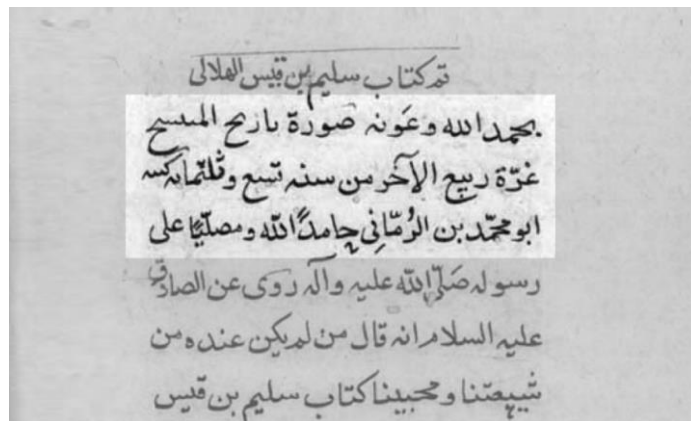 تم كتاب سليم بن قيس الهلالى
بحمد الله وعونه صورة تاريخ المنسخ
غرّة ربيع الآخر من سنه تسع وثلثمائه كتبه
ابو محمّد بن الرُمّاني حامداً لله ومصلّيًا على
رسوله صَلّى الله عليه وآله روى عن الصادق
عليه السلام انه قال من لم يكن عنده من
شيعتنا ومحبينا كتاب سليم بن قيس